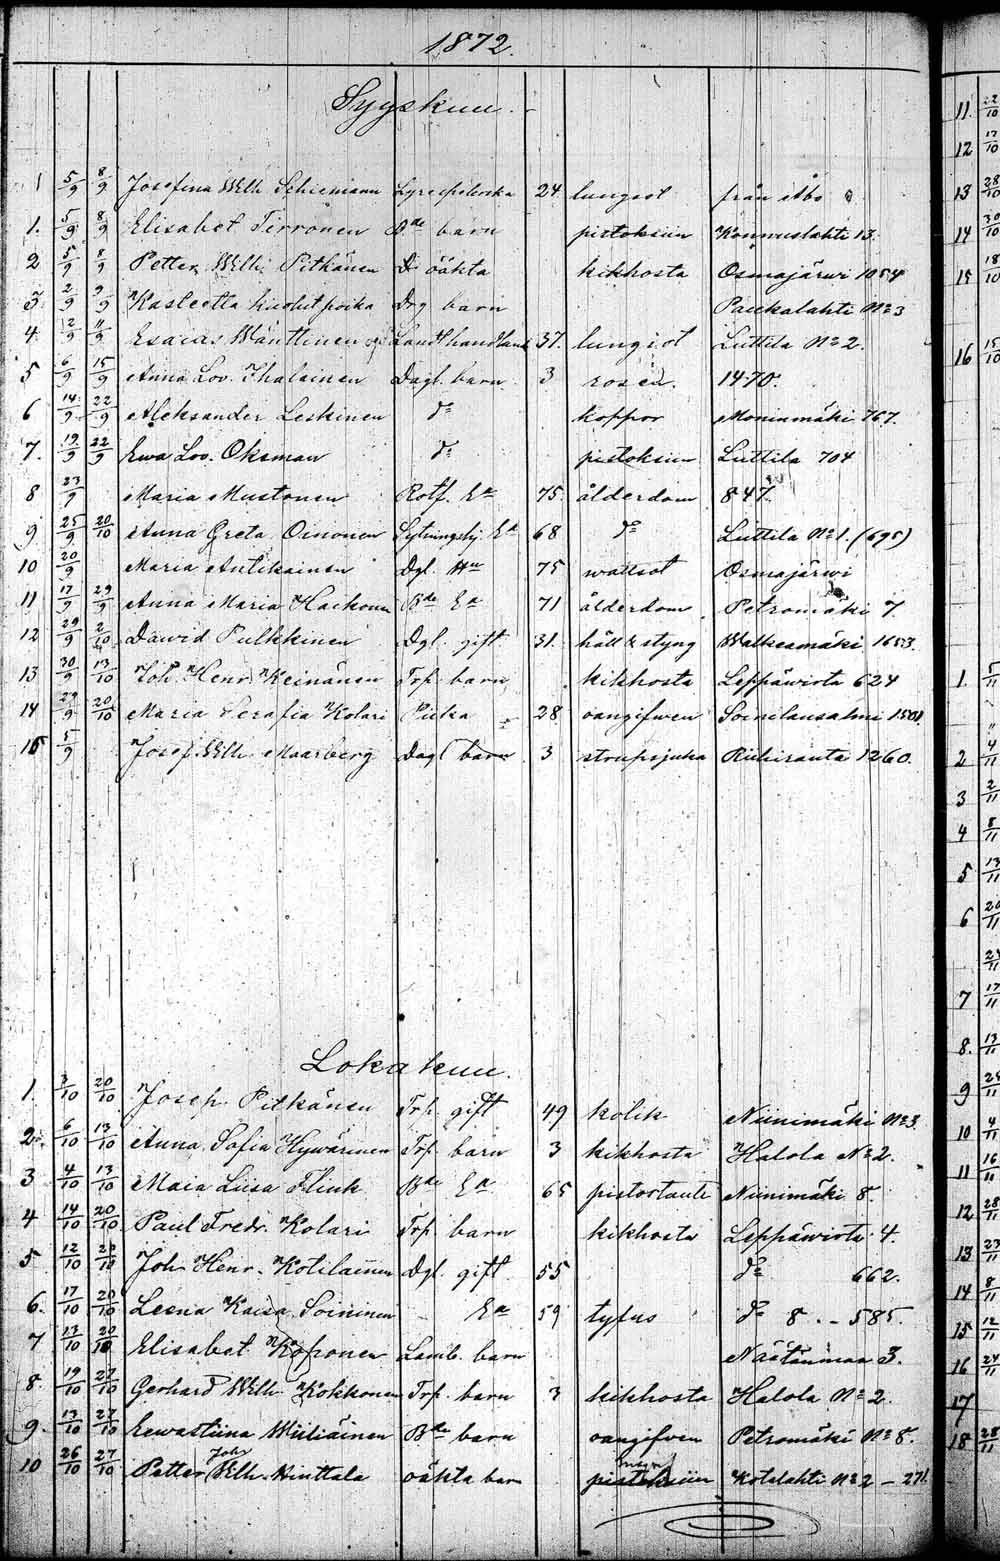 1872.
Syyskuu.
1 5/9 8/9 Josefina Wilh. Schiemann 24 lungsot från Åbo
1. 5/9 8/9 Elisabet Tirronen Bde barn pistoksiin Konnuslahti 13.
2 5/9 8/9 Petter Wilh. Pitkänen Do oäkta kikhosta Osmajärwi 1054
3 2/9 9/9 Kasteetta kuollut poika Drg barn Paukalahti No 3
4. 2/9 11/9 Esaias Wänttinen Landthandland 37. lungsot Luttila No 2.
5 6/9 15/9 Anna Lov. Ihalainen Dagl. barn 3 rosen. 1470.
6 14/9 22/9 Aleksander Leskinen do koppor Moninmäki 767.
7. 19/9 22/9 Ewa Lov. Oksman do pistoksiin Luttila 704
8 23/9 Maria Mustonen Rotf. Ea 75. ålderdom 847.
9 25/9 20/10 Anna Greta Oinonen Sytningshj. Ea 68 do Luttila No 1. (695)
10 20/9 Maria Antikainen Dgl. Hu 75 wattsot Osmajärwi
11 17/9 29/9 Anna Maria Hackonen Bde Ea 71 ålderdom Petromäki 7
12 29/9 2/10 Dawid Pulkkinen Dgl. gift 31. håll & styng Walkeamäki 1653.
13 30/9 13/10 Joh. Henr. Keinänen Trp. barn kikhosta Leppäwirta 624
14 29/9 20/10 Maria Serafia Kolari Piika 28 oangifwen Soinilansalmi 1501.
15 5/9 Josef Wilh. Maarberg Dagl barn 3 strupsjuka Riihiranta 1260.
Lokakuu.
1. 3/10 20/10 Joseph Pitkänen Trp. gift 49 kolik Niinimäki No 3.
2. 6/10 13/10 Anna Sofia Hywärinen Trp. barn 3 kikhosta Halola No 2.
3 4/10 13/10 Maia Liisa Flink Bde Ea 65 pistostauti Niinimäki 8.
4 14/10 20/10 Paul Fredr. Kolari Trp. barn kikhosta Leppäwirta 4.
5 12/10 20/10 Joh. Henr. Kotilainen Dgl. gift 55 do 662.
6. 17/10 20/10 Leena Kaisa Soininen Ea 59 tyfus do 8. - 585.
7 13/10 20/10 Elisabet Koponen Lamb. barn Näätänmaa 3.
8. 19/10 27/10 Gerhard Wilh. Kokkonen Trp. barn 3 kikhosta Halola No 2.
9. 13/10 27/10 Eewastiina Miiliäinen Bde barn oangifwen Petromäki No 8.
Joh.
10 26/10 27/10 Petter Wilh. Hinttala oäkta barn pistoksiin Kotalahti No 2 - 271.
11. 22/10
12 17/10
13 28/10
14 30/10
15 18/10
16 15/10
1. 5/11
2 4/11
3 2/11
4 8/11
5 13/11
6 20/11
24/11
7 17/11
8. 13/11
9 24/11
10 4/11
11 16/11
12 28/11
13 23/11
14 8/11
15 12/11
16 24/11
17
18 28/11